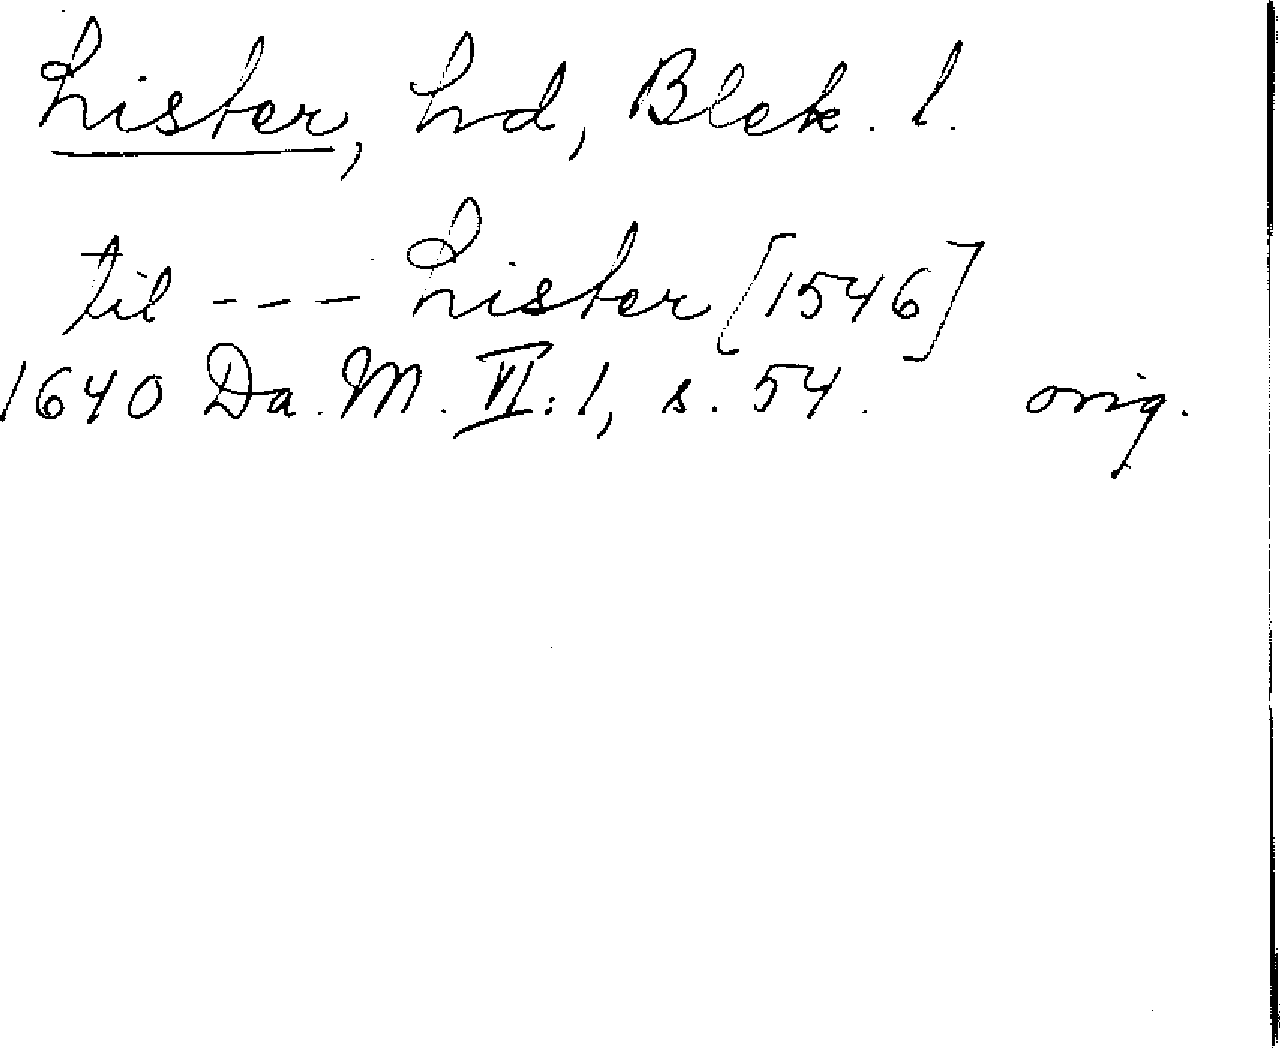 Lister, hd, Blek. l.
til --- Lister [1546]
1640 Da. M. VI: 1, s. 54. orig.